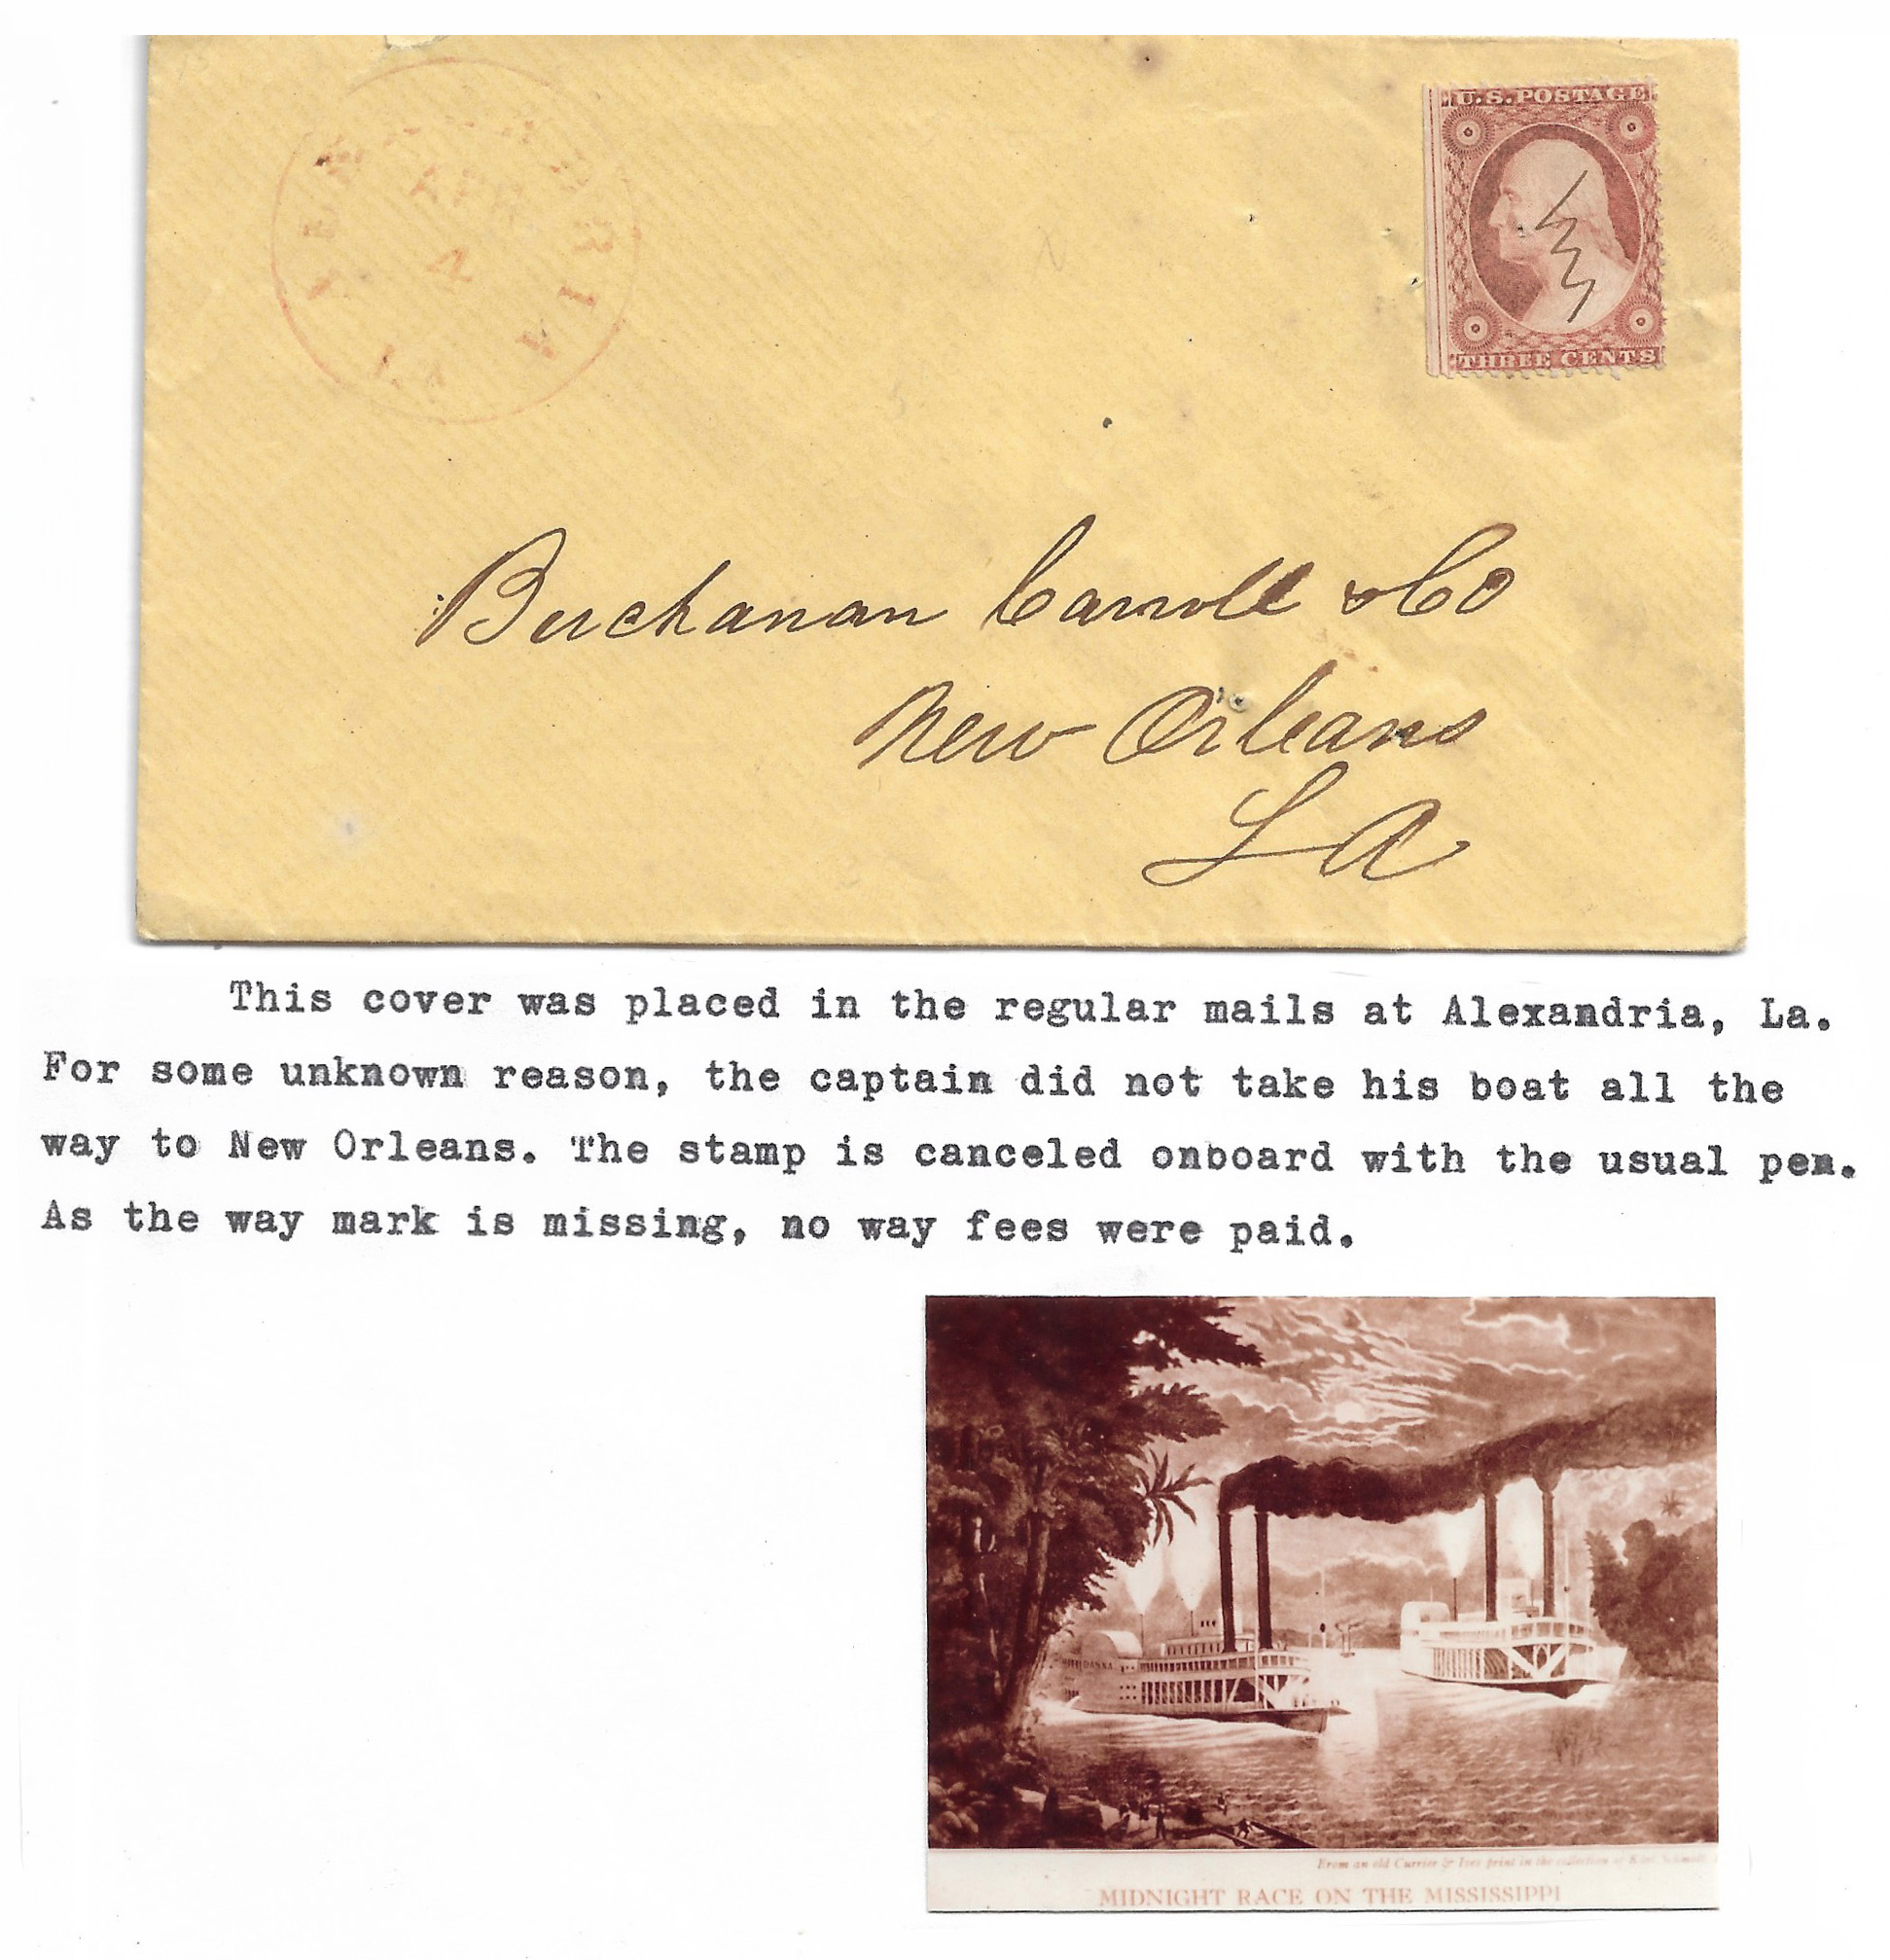 APR
4
LA
U.S. POSTAGE
THREE CENTS
Buchanan Carroll & Co
New Orleans
LA
This cover was placed in the regular mails at Alexandria, La.
For some unknown reason, the captain did not take his boat all the
way to New Orleans. The stamp is canceled onboard with the usual pen.
As the way mark is missing, no way fees were paid.
From an old Currier & Ives print in the collection of
MIDNIGHT RACE ON THE MISSISSIPPI